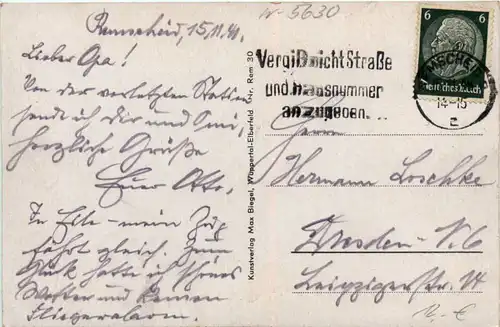 Remscheid, 15.11.40.
Lieber Opa!
Von der vorletzten Station
sende ich Dir und Omi
herzliche Grüße
Euer Otto.
In Eile – mein Zug
fährt gleich. Zum
Glück hatte ich schönes
Wetter und keinen
Fliegeralarm.
Kunstverlag Max Biegel, Wuppertal-Elberfeld Rem 30
W-5630
Vergiß nicht Straße
und Hausnummer
anzugeben.
6 6
Deutsches Reich
14-15
z
Herrn
Hermann Loschke
Dresden-N. 6
Leipzigerstr. 14
12.-€